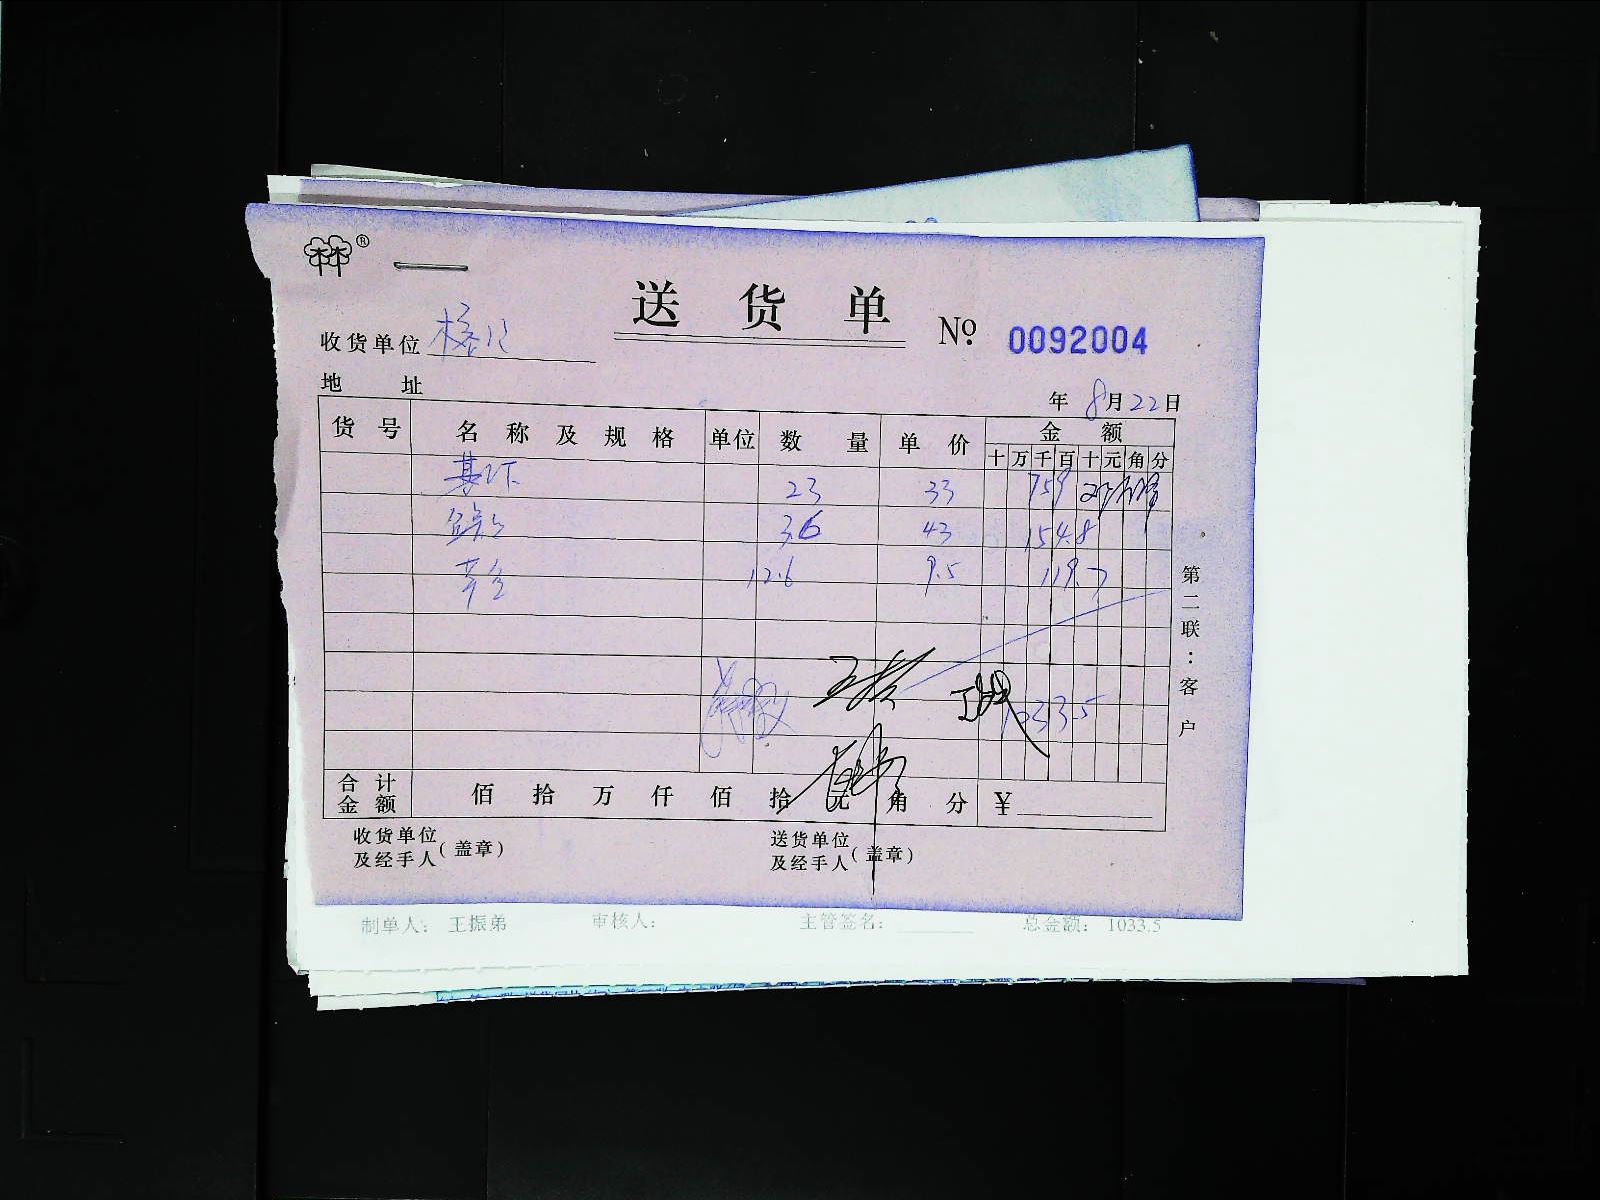 ®
送货单 № 0092004
收货单位
地址
年 8月22日
货号 名称及规格 单位 数量 单价 金额
十万千百十元角分
23 33 759
3.6 43 154.8
12.6 9.5 119.7
1033.5
合计金额 佰 拾 万 仟 佰 拾 元 角 分 ¥
收货单位及经手人(盖章) 送货单位及经手人(盖章)
第二联：客户
制单人： 王振弟 审核人： 主管签名： 总金额： 1033.5